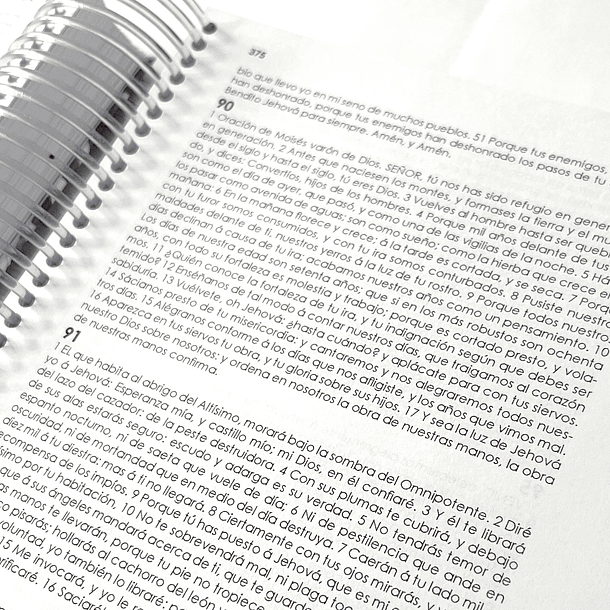 375
bio que llevo yo en mi seno de muchos pueblos. 51 Porque tus enemigos,
han deshonrado, porque tus enemigos han deshonrado los pasos de tu
Bendito Jehová para siempre. Amén, y Amén.
90
1 Oración de Moisés varón de Dios. SEÑOR, tú nos has sido refugio en gener
en generación. 2 Antes que naciesen los montes, y formases la tierra y el mu
desde el siglo y hasta el siglo, tú eres Dios. 3 Vuelves al hombre hasta ser queb
do, y dices: Convertíos, hijos de los hombres. 4 Porque mil años delante de tus
son como el día de ayer, que pasó, y como una de las vigilias de la noche. 5 Ha
los pasar como avenida de aguas; son como sueño; como la hierba que crece e
mañana: 6 En la mañana florece y crece; á la tarde es cortada, y se seca. 7 Porq
con tu furor somos consumidos, y con tu ira somos conturbados. 8 Pusiste nuestr
maldades delante de ti, nuestros yerros á la luz de tu rostro. 9 Porque todos nuestro
días declinan á causa de tu ira; acabamos nuestros años como un pensamiento. 10
Los días de nuestra edad son setenta años; que si en los más robustos son ochenta
años, con todo su fortaleza es molestia y trabajo; porque es cortado presto, y vola-
mos. 11 ¿Quién conoce la fortaleza de tu ira, y tu indignación según que debes ser
temido? 12 Enséñanos de tal modo á contar nuestros días, que traigamos al corazón
sabiduría. 13 Vuélvete, oh Jehová: ¿hasta cuándo? y aplácate para con tus siervos.
14 Sácianos presto de tu misericordia: y cantaremos y nos alegraremos todos nues-
tros días. 15 Alégranos conforme á los días que nos afligiste, y los años que vimos mal.
16 Aparezca en tus siervos tu obra, y tu gloria sobre sus hijos. 17 Y sea la luz de Jehová
nuestro Dios sobre nosotros: y ordena en nosotros la obra de nuestras manos, la obra
de nuestras manos confirma.
91
1 EL que habita al abrigo del Altísimo, morará bajo la sombra del Omnipotente. 2 Diré
yo á Jehová: Esperanza mía, y castillo mío; mi Dios, en él confiaré. 3 Y él te librará
del lazo del cazador: de la peste destruidora. 4 Con sus plumas te cubrirá, y debajo
de sus alas estarás seguro; escudo y adarga es su verdad. 5 No tendrás temor de
espanto nocturno, ni de saeta que vuele de día; 6 Ni de pestilencia que ande en
oscuridad, ni de mortandad que en medio del día destruya. 7 Caerán á tu lado mil
diez mil á tu diestra: mas á ti no llegará. 8 Ciertamente con tus ojos mirarás, y
ecompensa de los impíos. 9 Porque tú has puesto á Jehová, que es mi
simo por tu habitación, 10 No te sobrevendrá mal, ni plaga
que á sus ángeles mandará acerca de ti, que te guarde
as manos te llevarán, porque tu pie no tropiece
o pisarás; hollarás al cachorro del león y
voluntad, yo también lo libraré:
15 Me invocará, y yo le
rificaré. 16 Saciaré